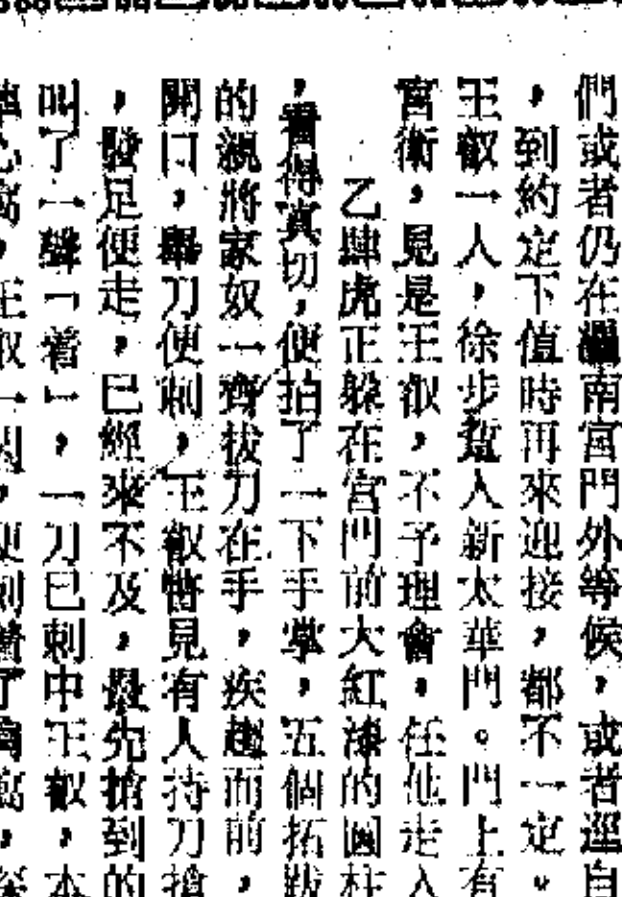 們或者仍在南宮門外等候，或者逕自
，到約定下值時再來迎接，都不一定。
王叡一人，徐步踅入新太華門。門上有
宮衛，見是王叡，不予理會，任他走入
乙肆虎正躲在宮門前大紅漆的圓柱
，看得真切，便拍了一下手掌，五個拓跋
的親將家奴一齊拔刀在手，疾趨而前，
開口，舉刀便刺，王叡瞥見有人持刀搶
，發足便走，已經來不及，最先搶到的
叫了一聲「着」，一刀已刺中王叡，本
心窩，王叡一閃，便刺着了肩窩，深